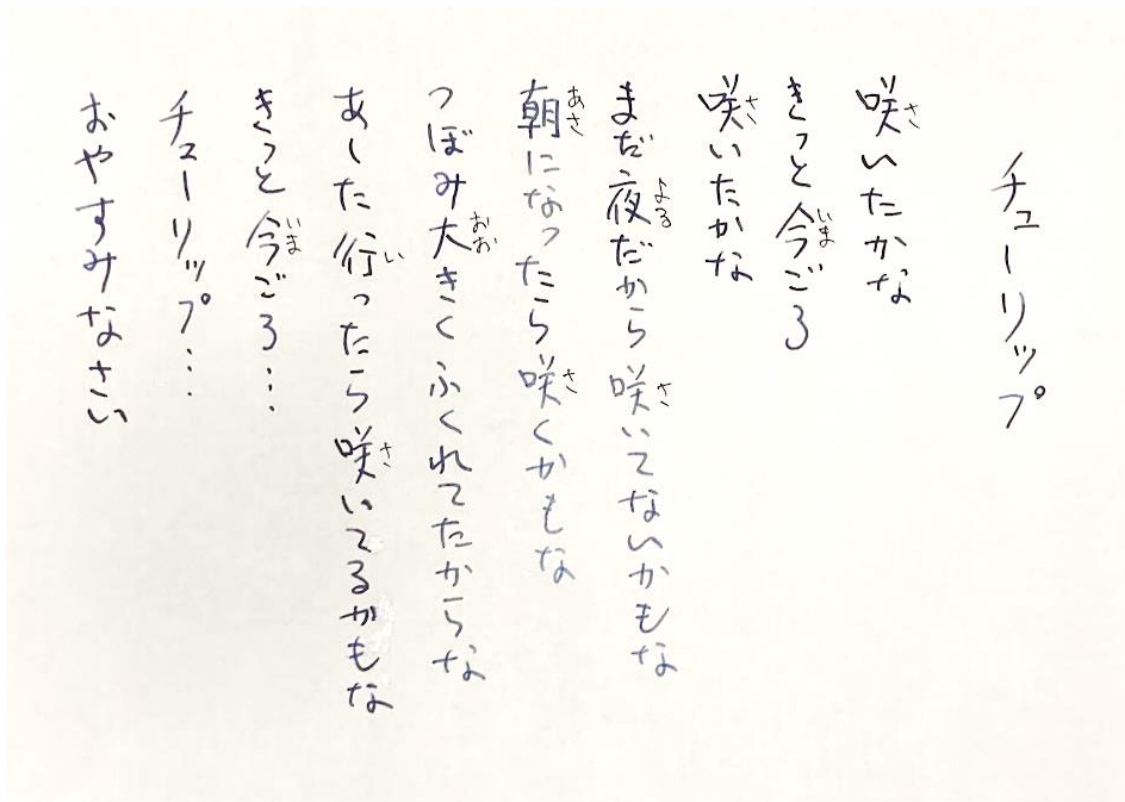 チューリップ
咲いたかな
きっと今ごろ
咲いたかな
まだ夜だから咲いてないかもな
朝になったら咲くかもな
つぼみ大きくふくれてたからな
あした行ったら咲いてるかもな
きっと今ごろ…
チューリップ…
おやすみなさい